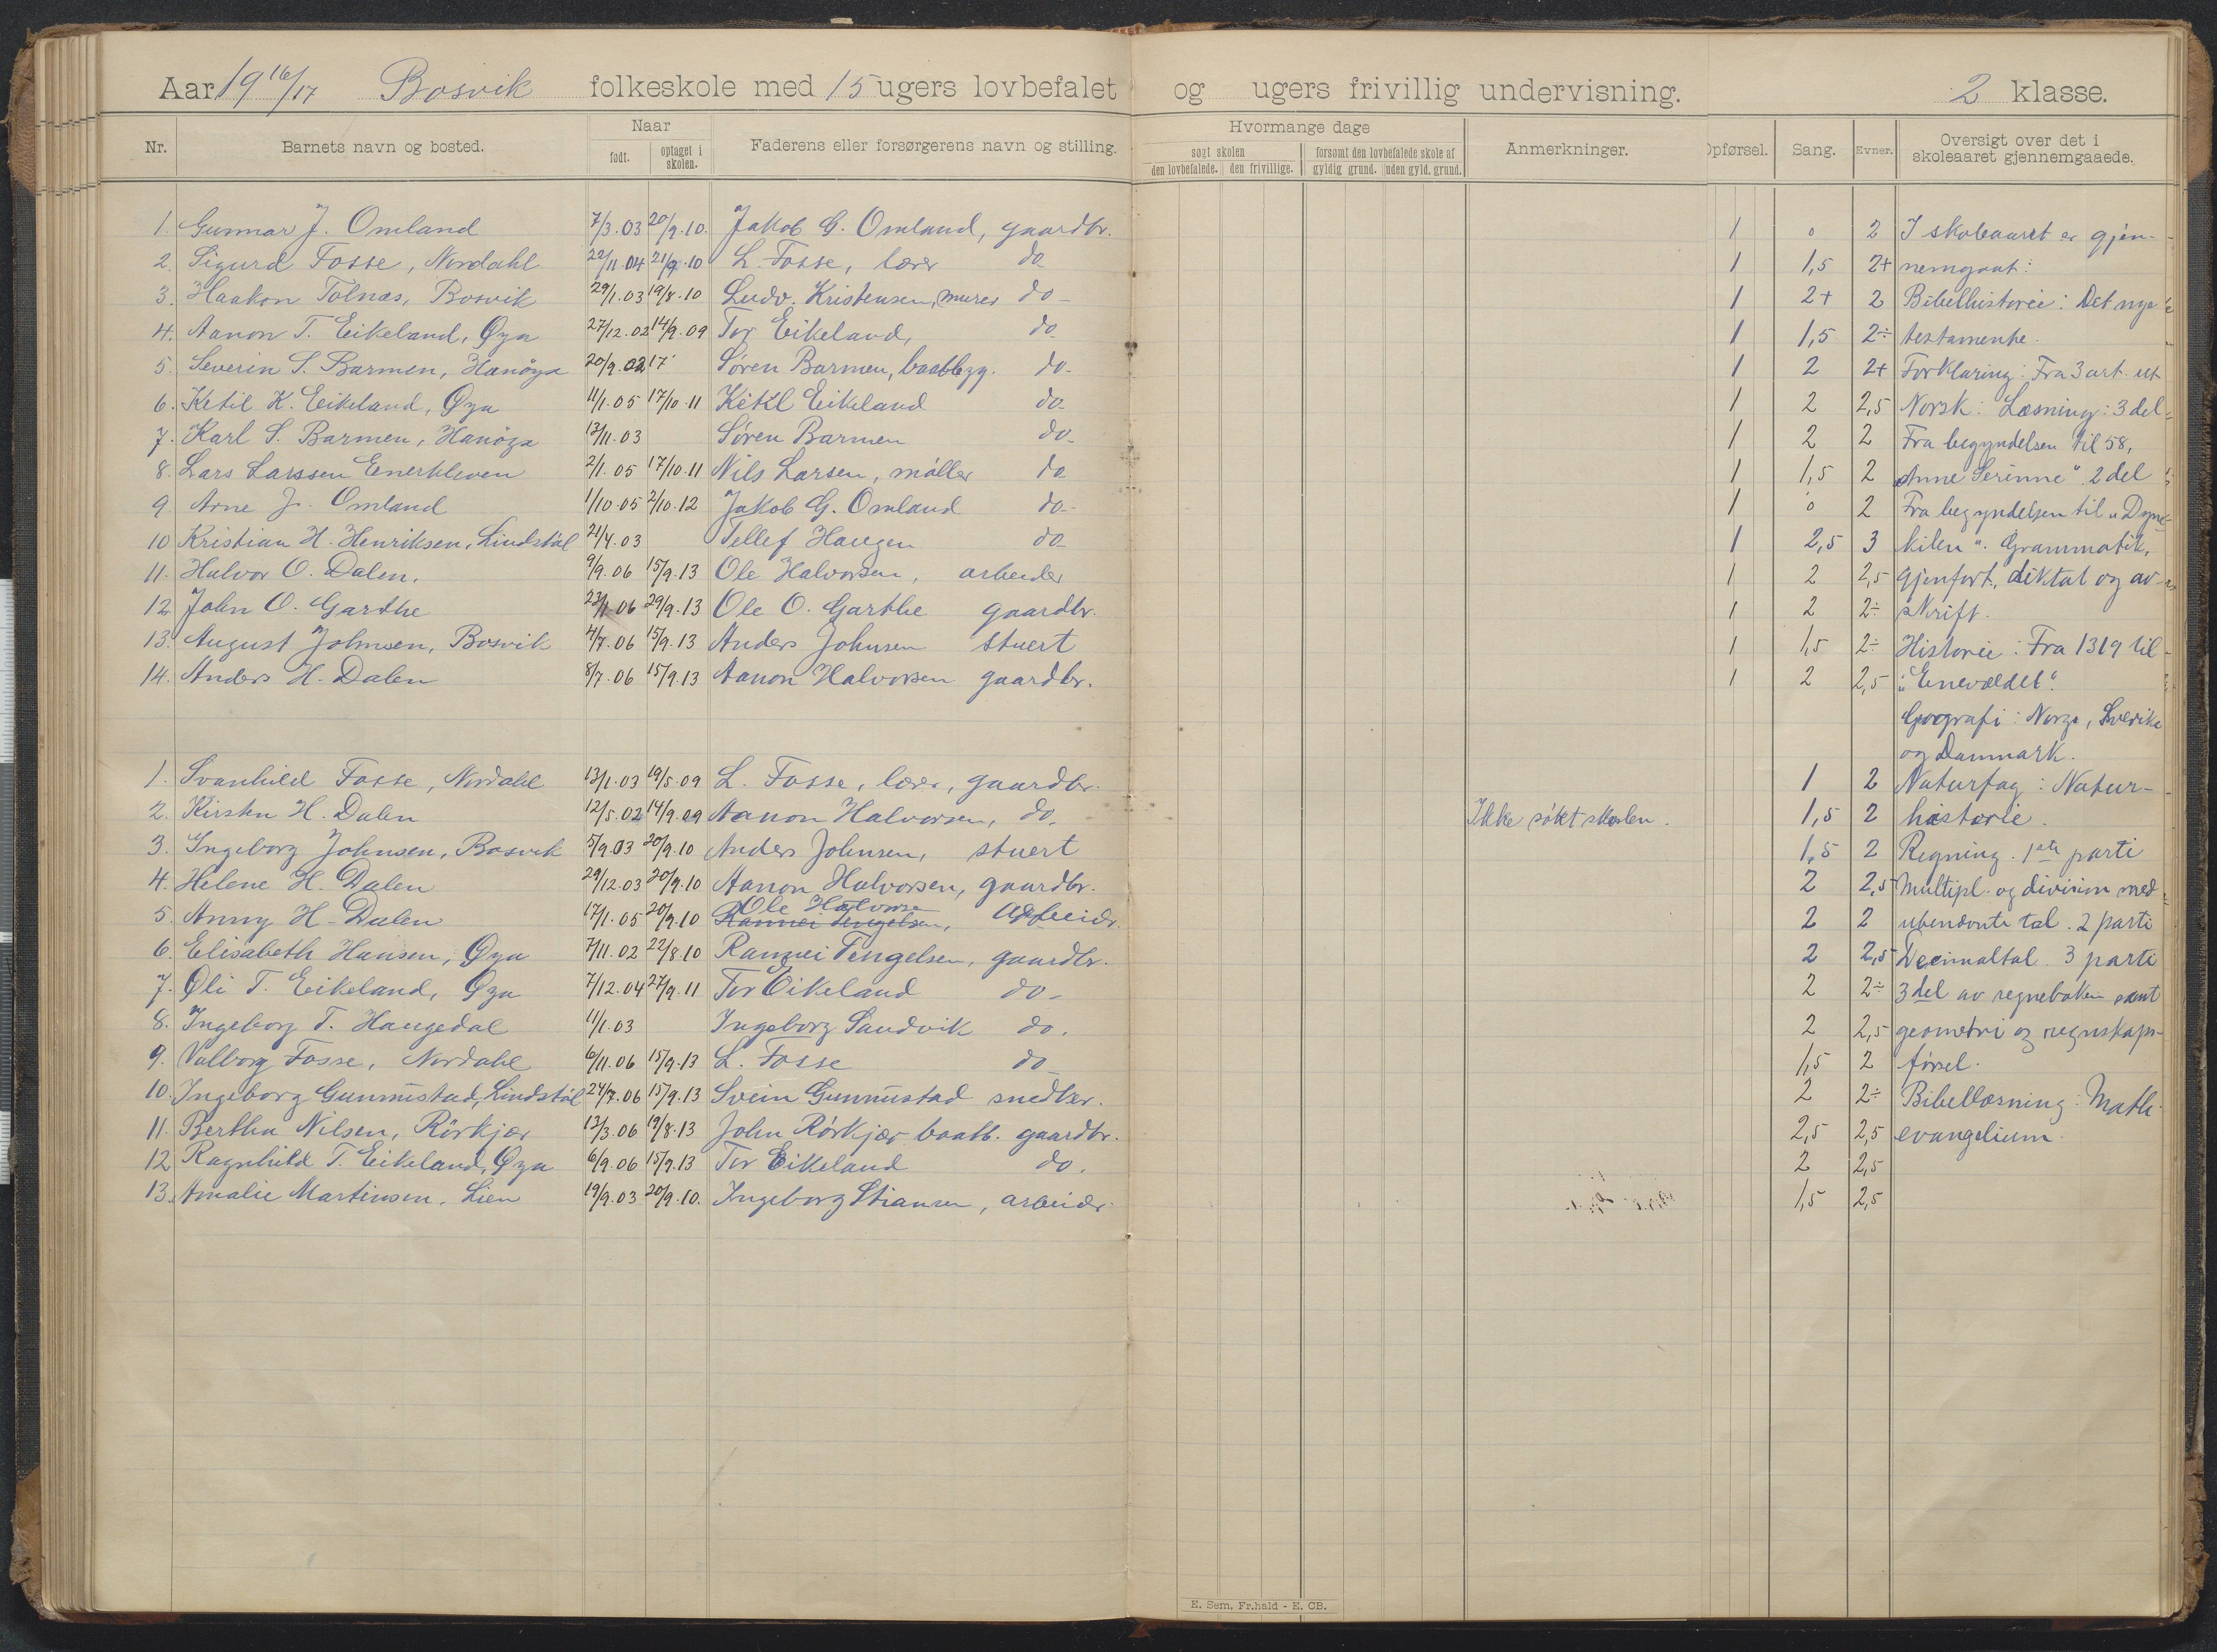 Aar 19 16/17 Bosvik folkeskole med 15 ugers lovbefalet og ugers frivillig undervisning. 2 klasse.
Nr. Barnets navn og bosted. Naar født. optaget i skolen. Faderens eller forsørgerens navn og stilling. Hvormange dage søgt skolen den lovbefalede. den frivillige. forsømt den lovbefalede skole af gyldig grund. uden gyld. grund. Anmerkninger. Opførsel. Sang. Evner. Oversigt over det i skoleaaret gjennemgaaede.
1. Gunnar J. Omland 7/3.03 20/9.10. Jakob G. Omland, gaardbr. 1 0 2 I skoleaaret er gjen-
2. Sigurd Fosse, Nordahl 22/11.04 21/9.10 L. Fosse, lærer do 1 1,5 2+ nemgaat:
3. Haakon Tolnæs, Bosvik 29/1.03 19/8.10 Ludv. Kristensen, murer do- 1 2+ 2 Bibelhistorie: Det nye
4. Aanon T. Eikeland, Øya 27/12.02 14/9.09 Tor Eikeland, do- 1 1,5 2÷ testamente.
5. Severin S. Barmen, Hanöya 20/9.02 17 Søren Barmen, baatbygg. do- 1 2 2+ Forklaring: Fra 3 art. ut
6. Ketil K. Eikeland, Øya 11/1.05 17/10.11 Ketil Eikeland do- 1 2 2,5 Norsk: Læsning: 3 del-
7. Karl S. Barmen, Hanöya 13/11.03 Søren Barmen do- 1 2 2 Fra begyndelsen til 58,
8. Lars Larssen Enerkleven 2/1.05 17/10.11 Nils Larsen, møller do 1 1,5 2 "Anne Serinne" 2 del
9. Arne J. Omland 1/10.05 2/10.12 Jakob G. Omland do- 1 0 2 Fra begyndelsen til "Dyne-
10 Kristian H. Henriksen, Lindstöl 21/4.03 Tellef Haugen do- 1 2,5 3 kilen". Grammatik,
11. Halvor O. Dalen. 9/9.06 15/9.13 Ole Halvorsen, arbeider 1 2 2,5 gjenfort, diktat og av-
12 John O. Garthe 23/1.06 29/9.13 Ole O. Garthe gaardbr. 1 2 2÷ skrift.
13. August Johnsen, Bosvik 4/7.06 15/9.13 Anders Johnsen stuert 1 1,5 2÷ Historie: Fra 1319 til
14. Anders H. Dalen 8/7.06 15/9.13 Aanon Halvorsen gaardbr. 1 2 2,5 "Enevældet".
Geografi: Norge, Sverike
og Danmark.
1. Svanhild Fosse, Nordahl 13/1.03 19/5.09 L. Fosse, lærer, gaardbr. 1 2 Naturfag: Natur-
2. Kirsten H. Dalen 12/5.02 14/9.09 Aanon Halvorsen, do. Ikke søkt skolen. 1,5 2 historie.
3. Ingeborg Johnsen, Bosvik 5/9.03 20/9.10 Anders Johnsen, stuert 1,5 2 Regning. 1ste parti
4. Helene H. Dalen 29/12.03 20/9.10 Aanon Halvorsen, gaardbr. 2 2,5 Multipl. og division med
5. Anny H. Dalen 17/1.05 20/9.10 Ole Halvorsen Rannei Tengelsen, Arbeider. 2 2 ubenævnte tal. 2 parti
6. Elisabeth Hansen, Øya 7/11.02 22/8.10 Rannei Tengelsen, gaardbr. 2 2,5 Decimaltal. 3 parti
7. Oli T. Eikeland, Øya 7/12.04 27/9.11 Tor Eikeland do- 2 2÷ 3 del av regneboken samt
8. Ingeborg T. Haugedal 11/1.03 Ingeborg Sandvik do. 2 2,5 geometri og regnskaps-
9. Valborg Fosse, Nordahl 6/11.06 15/9.13 L. Fosse do 1,5 2 førsel.
10. Ingeborg Gunnustad, Lindstöl 24/7.06 15/9.13 Svein Gunnustad snedker. 2 2÷ Bibellæsning: Math.
11. Bertha Nilsen, Rörkjær 13/3.06 19/8.13 John Rörkjær baatb. gaardbr. 2,5 2,5 evangelium.
12 Ragnhild T. Eikeland, Øya 6/9.06 15/9.13 Tor Eikeland do. 2 2,5
13. Amalie Martinsen, Lien 19/9.03 20/9.10. Ingeborg Stiansen, arbeider 1,5 2,5
E. Sem, Fr.hald - E. CB.